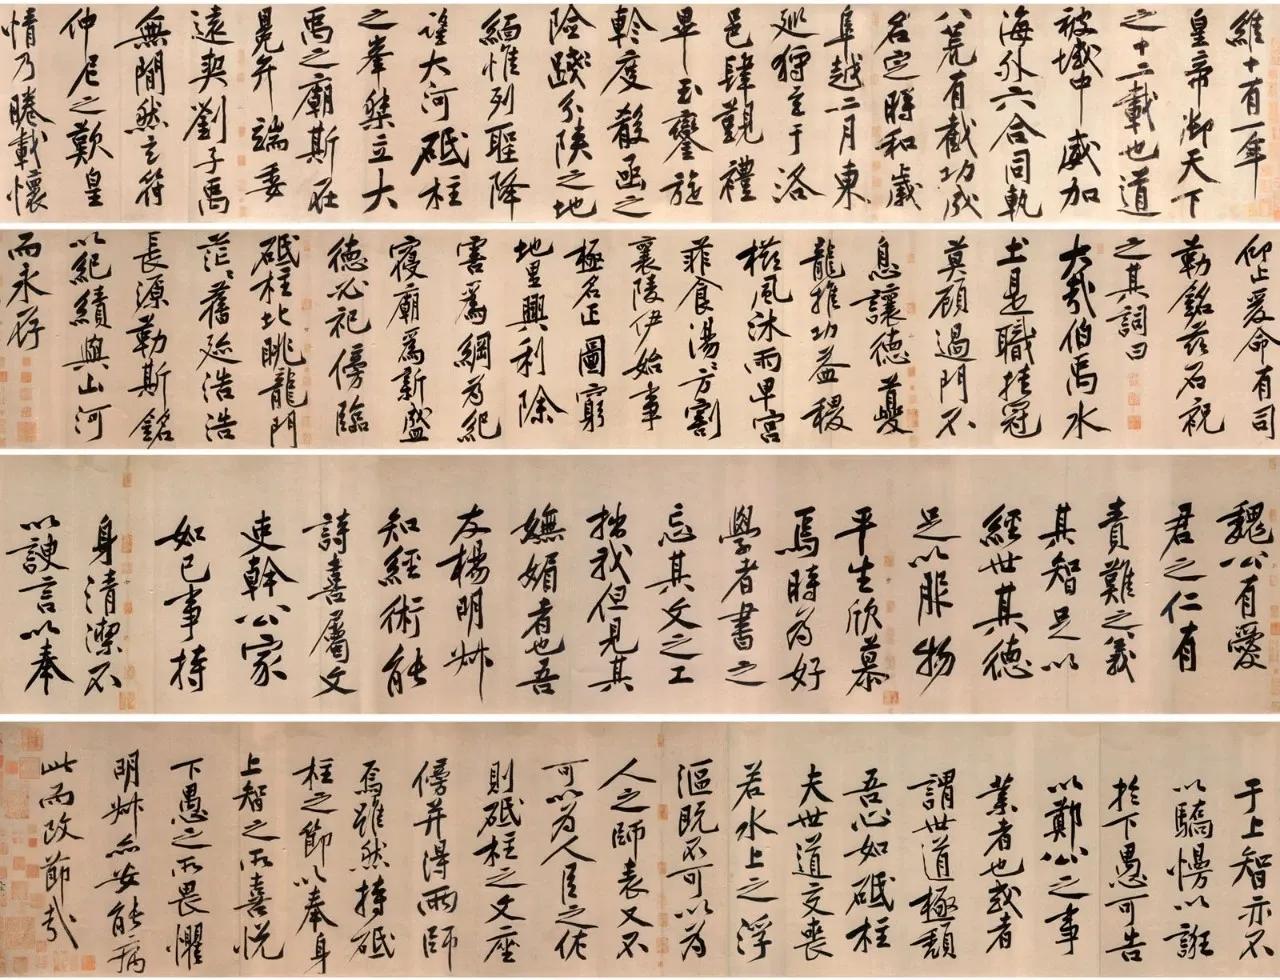 維十有一年
皇帝御天下
之十二載也道
被域中威加
海外六合同軌
八荒有截功成
名定時和歲
阜越二月東
廵狩至于洛
邑肆覲禮
畢玉鑾旋
軫度殽函之
險踐分陝之地
緬惟列聖降
望大河砥柱
之峯桀立大
禹之廟斯在
冕弁端委
遠契劉子禹
無閒然玄符
仲尼之歎皇
情乃睠載懷
仰止爰命有司
勒銘茲石祝
之其詞曰
大哉伯禹水
土是職挂冠
莫顧過門不
息讓德夔
龍推功益稷
櫛風沐雨卑宮
菲食湯湯方割
襄陵伊始事
極名正圖窮
地里興利除
害爲綱爲紀
寢廟爲新盛
德必祀傍臨
砥柱北眺龍門
茫茫舊跡浩浩
長源勒斯銘
以紀績與山河
而永存
魏公有愛
君之仁有
責難之義
其智足以
經世其德
足以服物
平生欣慕
焉時爲好
學者書之
忘其文之工
拙我但見其
嫵媚者也吾
友楊明叔
知經術能
詩喜屬文
吏幹公家
如己事持
身清潔不
以諛言以奉
于上智亦不
以驕慢以誑
於下愚可告
以鄭公之事
業者也或者
謂世道極頹
吾心如砥柱
夫世道交喪
若水上之浮
漚既不可以爲
人之師表又不
可以爲人臣之佐
則砥柱之文座
傍并得兩師
焉雖然持砥
柱之節以奉身
上智之所喜悅
下愚之所畏懼
明叔亦安能病
此而改節哉